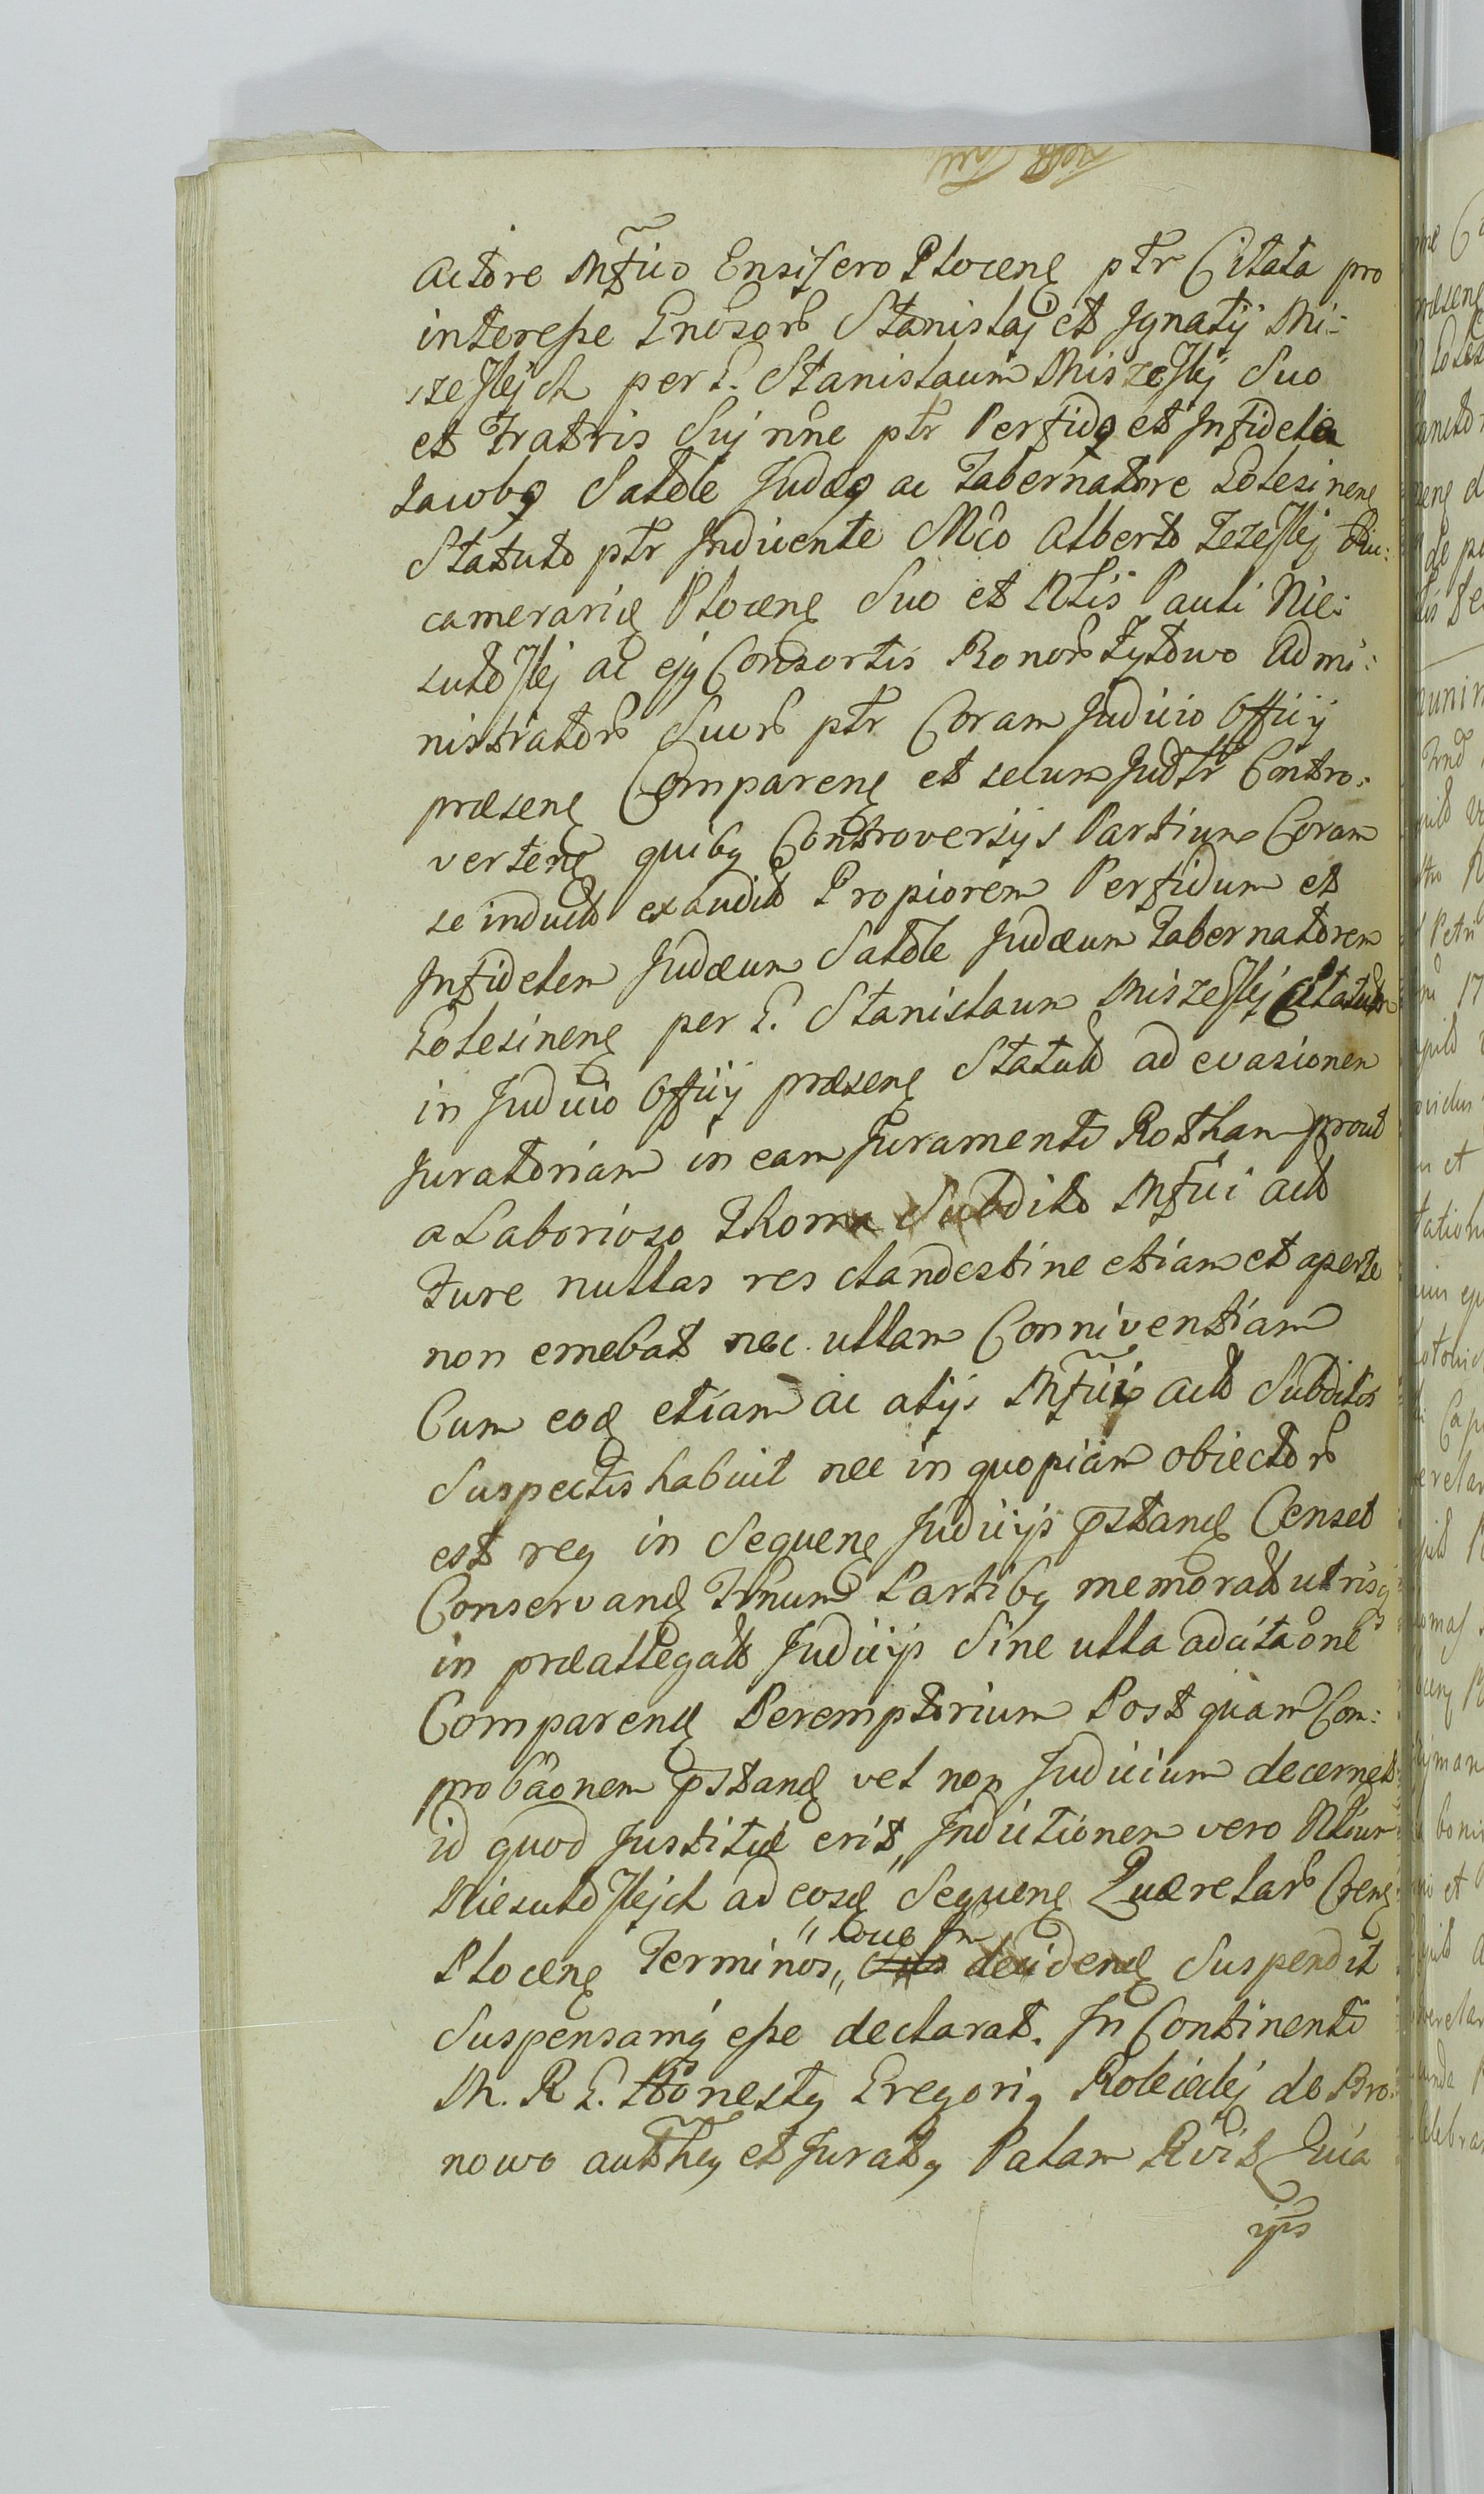 Actore Mfico Ensifero Plocen ptr Citata pro
interesse Gnosor Stanislaj et Ignatij Mi-
szeskich per G. Stanislaum Miszeskj Suo
et Fratris Suj nne ptr Perfido et Infideli
Jacobo Judæo ac Tabernatore Golesinen
Statuto ptr Inducente Mco Alberto
camerarie Plocen Suo et Pauli Nie:
ac ejq Consortis Bonor Administrator Suor ptr Coram Judicio Officij
præsen Comparen et secum Judtr Contro:
verten quibq Controversijs Partium Coram
se induct exaudit Propiorem Perfidum et
Infidelem Judæum Judæum Tabernatorem
Golesinen per G. Stanislaum Miszeskj Citatum
in Judicio Officij præsen Statut ad evasionem
Juratoriam in eam Juramenti Rotham prout
a Laborioso Thoma Subdito Mfici act
Fure nullas res clandestine etiam et aperte
non emebat nec ullam Conniventiam
Cum eod etiam ac alijs Mfici act Subditis
Suspectis habuit nec in quopiam obiector
est req in Sequen Judicijs pstand Censet
Conservand Trnum Partibq memorat utrisq
in præallegat Judicijs Sine ulla adcitaone
Comparend Peremptorium Post quam Com:
probaonem pstand vel non Judicium decernet
id quod Justitiæ erit, Inductionem vero
ad eosd Sequen Quærelar Cren
Plocen Terminos,, decidend Suspendit
Suspensamq esse declarat. In Continenti
M. R G. Honestq Gregoriq de Bro:
nowo authenq et Juratq Palam Rvit Quia
ijs